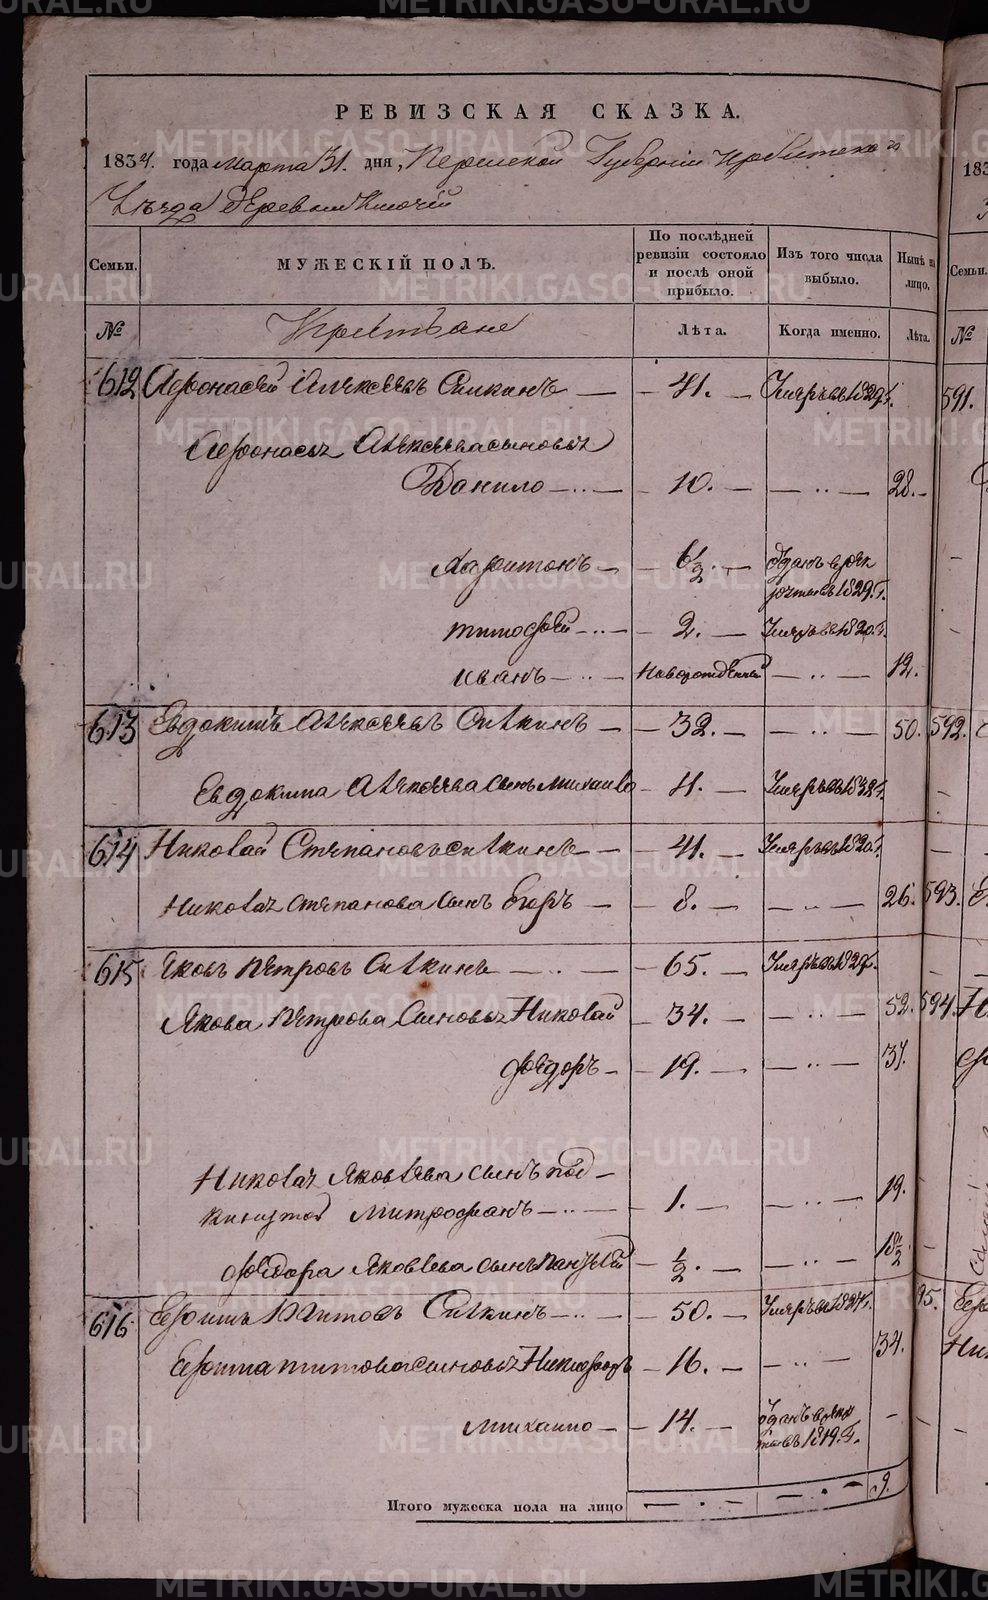 РЕВИЗСКАЯ СКАЗКА.
1834. года Марта 31. дня, Пермской Губернiи Ирбитскаго
Уѣзда деревни Ключей
Семьи. МУЖЕСКIЙ ПОЛЪ. По послѣдней ревизiи состояло и послѣ оной прибыло. Изъ того числа выбыло. Нынѣ на лицо.
№ Крестьяне Лѣта. Когда именно. Лѣта.
612 Афонасей Алексѣевъ Ситкинъ — 41. — Умеръ въ 1829 г.
Афонасья Алексѣева сыновья
Данило — 10. — — 28. —
Харитонъ — 6½. — Отданъ в рек
руты въ 1829. г.
Тимофей — 2. — Умеръ въ 1820. г.
Иванъ — новорожденной — 12.
613 Евдокимъ Алексѣевъ Ситкинъ — 32. — — 50.
Евдокима Алексѣева сынъ Михаило — 11. — Умеръ въ 1832 г.
614 Николай Степановъ Ситкинъ — 41. — Умеръ въ 1820. г.
Николая Степанова сынъ Егоръ — 8. — — 26.
615 Яковъ Петровъ Ситкинъ — 65. — Умеръ въ 1829 г.
Якова Петрова сыновья Николай — 34. — — 52.
Федоръ — 19. — — 37.
Николая Яковлева сынъ под
кинутой Митрофанъ — 1. — — 19.
Федора Яковлева сынъ — ½. — — 18½
616 Ефимъ Титовъ Ситкинъ — 50. — Умеръ въ г.
Ефима Титова сыновья Никифоръ — 16. — — 34.
Михаило — 14. — Отданъ в рекр
ты въ 1819. г.
Итого мужеска пола на лицо — 9.
183
Семьи.
№
591.
592.
593.
594.
95.
METRIKI.GASO-URAL.RU